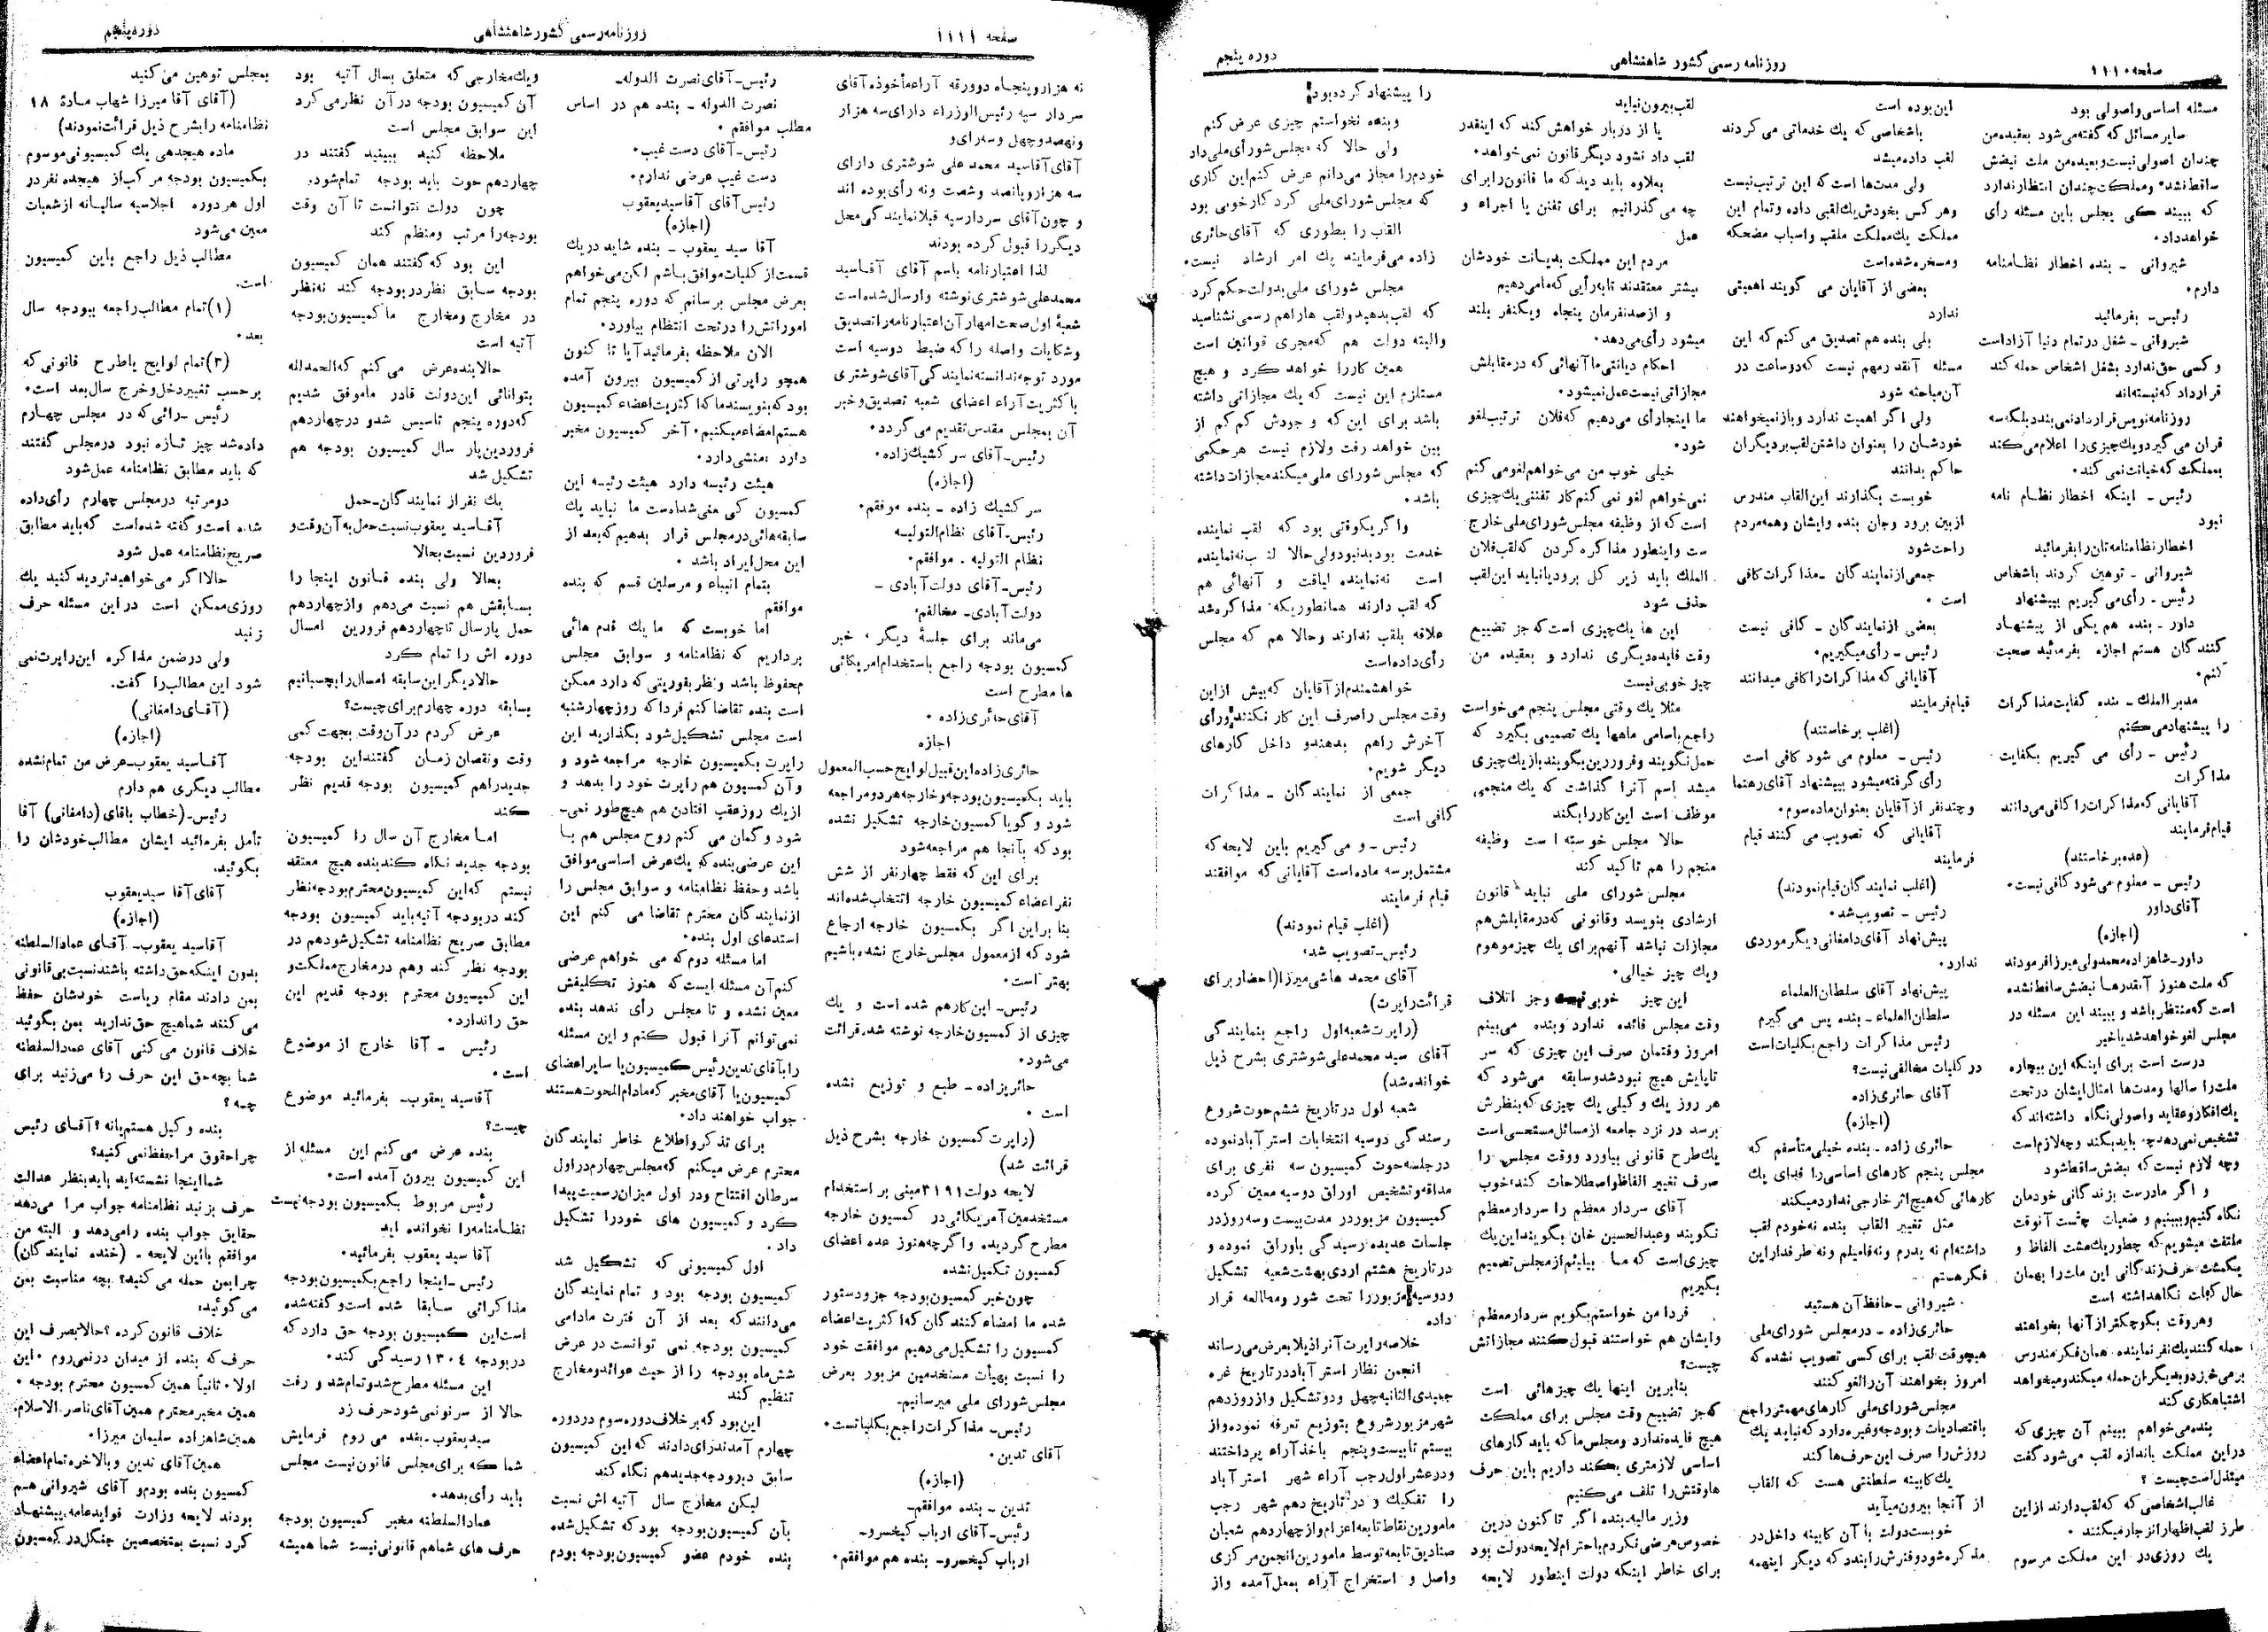 صفحه ۱۱۱۰
روزنامه رسمی کشور شاهنشاهی
دوره پنجم
مسئله اساسی واصولی بود
سایر مسائل که گفته می‌شود بعقیده من
چندان اصولی نیست و بعیده من ملت نبضش
ساقط نشد، ومملکت چندان انتظار ندارد
که ببیند کی مجلس باین مسئله رأی
خواهد داد.
شیروانی - بنده اخطار نظامنامه
دارم.
رئیس - بفرمائید
شیروانی - شغل در تمام دنیا آزاد است
و کسی حق ندارد بشغل اشخاص حمله کند
قرارداد که نبسته‌اند
روزنامه نویس قرارداد نمی بندد بلکه سه
قران می گیرد و یك چیزی را اعلام می‌کند
بمملکت که خیانت نمی کند.
رئیس - اینکه اخطار نظام نامه
نبود
اخطار نظامنامه تان را بفرمائید
شیروانی - توهین کردند باشخاص
رئیس - رأی می گیریم بپیشنهاد
داور - بنده هم یکی از پیشنهاد
کنندگان هستم اجازه بفرمائید صحبت
کنم.
مدبر الملك - بنده کفایت مذاکرات
را پیشنهاد می‌کنم
رئیس - رأی می گیریم بکفایت
مذاکرات
آقایانی که مذاکرات را کافی می‌دانند
قیام فرمایند
(عده برخاستند)
رئیس - معلوم می‌شود کافی نیست.
آقای داور
(اجازه)
داور - شاهزاده محمد ولی میرزا فرمودند
که ملت هنوز آنقدرها نبضش ساقط نشده
است که منتظر باشد و ببیند این مسئله در
مجلس لغو خواهد شد یا خیر
درست است برای اینکه این بیچاره
ملت را سالها ومدت‌ها امثال ایشان در تحت
یك افکار وعقاید واصولی نگاه داشته‌اند که
تشخیص نمی‌دهد چه باید بکند و چه لازم است
وچه لازم نیست که نبضش ساقط شود
و اگر ما درست بزندگانی خودمان
نگاه کنیم و ببینیم وضعیات چست آنوقت
ملتفت میشویم که چطور یك مشت الفاظ و
یکمشت حرف زندگانی این ملت را بهمان
حال کهات نگاهداشته است
وهروقت یکوچکتر از آنها بخواهند
حمله کنند یك نفر نماینده همان فکر مندرس
بر می خیزد و بدیگران حمله میکند و میخواهد
اشتباهکاری کند
بنده می‌خواهم ببینم آن چیزی که
در این مملکت باندازه لقب می‌شود گفت
مبتذل است چیست؟
غالب اشخاصی که که لقب دارند از این
طرز لقب اظهار انزجار میکنند.
یك روزی در این مملکت مرسوم
این بوده است
باشخاصی که یك خدماتی می کردند
لقب داده میشد
ولی مدت‌ها است که این ترتیب نیست
وهر کس بخودش یك لقبی داده وتمام این
مملکت یك مملکت ملقب واسباب مضحکه
ومسخره شده است
بعضی از آقایان می گویند اهمیتی
ندارد
بلی بنده هم تصدیق می کنم که این
مسئله آنقدر مهم نیست که دو ساعت در
آن مباحثه شود
ولی اگر اهمیت ندارد وباز نمیخواهند
خودشان را بعنوان داشتن لقب بر دیگران
حاکم بدانند
خوبست بگذارند این القاب مندرس
ازبین برود وجان بنده وایشان وهمه مردم
راحت شود
جمعی از نمایندگان - مذاکرات کافی
است.
بعضی از نمایندگان - کافی نیست
رئیس - رأی میگیریم.
آقایانی که مذاکرات را کافی میدانند
قیام فرمایند
(اغلب برخاستند)
رئیس - معلوم می شود کافی است
رأی گرفته میشود بپیشنهاد آقای رهنما
و چند نفر از آقایان بعنوان ماده سوم.
آقایانی که تصویب می کنند قیام
فرمایند
(اغلب نمایندگان قیام نمودند)
رئیس - تصویب شد.
پیش‌نهاد آقای دامغانی دیگر موردی
ندارد.
پیش‌نهاد آقای سلطان العلماء
سلطان العلماء - بنده پس می گیرم
رئیس مذاکرات راجع بکلیات است
در کلیات مخالفی نیست؟
آقای حائری زاده
(اجازه)
حائری زاده - بنده خیلی متأسفم که
مجلس پنجم کارهای اساسی را فدای یك
کارهائی که هیچ اثر خارجی ندارد میکند
مثل تغییر القاب بنده نه خودم لقب
داشته‌ام نه پدرم ونه فامیلم ونه طرفدار این
فکر هستم
شیروانی - حافظ آن هستید
حائری زاده - در مجلس شورای ملی
هیچوقت لقب برای کسی تصویب نشده که
امروز بخواهند آن را لغو کنند
مجلس شورای ملی کارهای مهمتر راجع
باقتصادیات و بودجه وغیره دارد که نباید یك
روزش را صرف این حرف‌ها کند
یك کابینه سلطنتی هست که القاب
از آنجا بیرون میآید
خوبست دولت با آن کابینه داخل در
مذکره شود و دفترش را ببندد که دیگر اینهمه
لقب بیرون نیاید
یا از دربار خواهش کند که اینقدر
لقب داد نشود دیگر قانون نمی‌خواهد.
بعلاوه باید دید که ما قانون را برای
چه می گذرانیم برای تفنن یا اجراء و
عمل
مردم این مملکت بدیانت خودشان
بیشتر معتقدند تا به رأیی که ما می‌دهیم
و از صد نفرمان پنجاه و یکنفر بلند
میشود رأی می‌دهد.
احکام دیانتی ما آنهائی که در مقابلش
مجازاتی نیست عمل نمیشود.
ما اینجا رأی می‌دهیم که فلان ترتیب لغو
شود.
خیلی خوب من می خواهم لغو می کنم
نمی‌خواهم لغو نمی کنم کار تفننی یك چیزی
است که از وظیفه مجلس شورای ملی خارج
ست واینطور مذاکره کردن که لقب فلان
الملك باید زیر کل برود یا نباید این لقب
حذف شود
این ها یك چیزی است که جز تضییع
وقت فایده دیگری ندارد و بعقیده من
چیز خوبی نیست
مثلا یك وقتی مجلس پنجم می‌خواست
راجع باسامی ماهها یك تصمیمی بگیرد که
حمل نگویند و فروردین بگویند باز یك چیزی
میشد اسم آنرا گذاشت که یك منجمی
موظف است این کار را بکند
حالا مجلس خو سته ا ست وظیفه
منجم را هم تاکید کند
مجلس شورای ملی نباید قانون
ارشادی بنویسد وقانونی که در مقابلش هم
مجازات نباشد آنهم برای یك چیز موهوم
ویك چیز خیالی.
این چیز خوبی نیست وجز اتلاف
وقت مجلس فائده ندارد و بنده می‌بینم
امروز وقتمان صرف این چیزی که سر
تاپایش هیچ نبود شد وسابقه می‌شود که
هر روز یك وکیلی یك چیزی که بنظرش
برسد در نزد جامعه از مسائل مستحسی است
یك طرح قانونی بیاورد ووقت مجلس را
صرف تغییر الفاظ واصطلاحات کند، خوب
آقای سردار معظم را سردار معظم
نگویند وعبدالحسین خان بگویند این یك
چیزی است که ما بیائیم از مجلس تصمیم
بگیریم
فردا من خواستم بگویم سردار معظم
وایشان هم خواستند قبول کنند مجازاتش
چیست؟
بنابرین اینها یك چیزهائی است
که جز تضییع وقت مجلس برای مملکت
هیچ فایده ندارد و مجلس ما که باید کارهای
اساسی لازمتری بکند داریم باین حرف
هاوقتش را تلف می‌کنیم
وزیر مالیه - بنده اگر تاکنون درین
خصوص عرضی نکردم باحترام لایحه دولت بود
برای خاطر اینکه دولت اینطور لایحه
را پیشنهاد کرده بود
وبنده نخواستم چیزی عرض کنم
ولی حالا که مجلس شورای ملی داد
خودم را مجاز می‌دانم عرض کنم این کاری
که مجلس شورای ملی کرد کار خوبی بود
القاب را بطوری که آقای حائری
زاده می‌فرمایند یك امر ارشاد نیست.
مجلس شورای ملی بدولت حکم کرد
که لقب بدهید ولقب هاراهم رسمی نشناسید
والبته دولت هم که مجری قوانین است
همین کار را خواهد کرد و هیچ
مستلزم این نیست که یك مجازاتی داشته
باشد برای این که و جودش کم کم از
بین خواهد رفت ولازم نیست هر حکمی
که مجلس شورای ملی میکند مجازات داشته
باشد.
واگر یکوقتی بود که لقب نماینده
خدمت بود بد نبود ولی حالا لقب نه نماینده
است نه نماینده لیاقت و آنهائی هم
که لقب دارند همانطوریکه مذاکره شد
علاقه بلقب ندارند وحالا هم که مجلس
رأی داده است
خواهشمندم از آقایان که بیش از این
وقت مجلس را صرف این کار نکنند ورأی
آخرش راهم بدهند و داخل کارهای
دیگر شویم.
جمعی از نمایندگان - مذاکرات
کافی است
رئیس - و می گیریم باین لایحه که
مشتمل بر سه ماده است آقایانی که موافقند
قیام فرمایند
(اغلب قیام نمودند)
رئیس - تصویب شد،
آقای محمد هاشی میرزا (احضار برای
قرائت راپرت)
(راپرت شعبه اول راجع بنمایندگی
آقای سید محمد علی شوشتری بشرح ذیل
خوانده شد)
شعبه اول در تاریخ ششم حوت شروع
رسندگی دوسیه انتخابات استرآباد نموده
در جلسه حوت کمیسیون سه نفری برای
مداقه وتشخیص اوراق دوسیه معین کرده
کمیسیون مزبور در مدت بیست وسه روز در
جلسات عدیده رسیدگی باوراق نموده و
در تاریخ هشتم اردی بهشت شعبه تشکیل
ودوسیه مزبور را تحت شور ومطالعه قرار
داده
خلاصه راپرت آنرا ذیلا بعرض می‌رساند
انجمن نظار استرآباد در تاریخ غره
جمیدی الثانیه چهل ودو تشکیل واز روز دهم
شهر مزبور شروع بتوزیع تعرفه نموده واز
بیستم تا بیست و پنجم باخذ آراء پرداختند
ودر عشر اول رجب آراء شهر استرآباد
را تفکیك و در تاریخ دهم شهر رجب
مامورین نقاط تابعه اعزام واز چهاردهم شعبان
صنادیق تابعه توسط مامورین انجمن مرکزی
واصل و استخراج آراء بعمل آمده واز
صفحه ۱۱۱۱
روزنامه رسمی کشور شاهنشاهی
دوره پنجم
نه هزار و پنجاه دوورقه آراء مأخوذه آقای
سردار سپه رئیس الوزراء دارای سه هزار
ونهصد و چهل و سه رای و
آقای آقاسید محمد علی شوشتری دارای
سه هزار و پانصد وشصت ونه رأی بوده اند
و چون آقای سردار سپه قبلا نمایندگی محل
دیگر را قبول کرده بودند
لذا اعتبارنامه باسم آقای آقاسید
محمد علی شوشتری نوشته وارسال شده است
شعبهٔ اول صحت امهار آن اعتبارنامه را تصدیق
وشکایات واصله را که ضبط دوسیه است
مورد توجه ندانسته نمایندگی آقای شوشتری
با کثریت آراء اعضای شعبه تصدیق وخبر
آن بمجلس مقدس تقدیم می گردد.
رئیس - آقای سر کشیك زاده.
(اجازه)
سر کشیك زاده - بنده موافقم.
رئیس - آقای نظام التولیه
نظام التولیه - موافقم.
رئیس - آقای دولت آبادی -
دولت آبادی - مخالفم.
می‌ماند برای جلسهٔ دیگر، خبر
کمسیون بودجه راجع باستخدام امریکائی
ها مطرح است
آقای حائری زاده.
اجازه
حائری زاده این قبیل لوایح حسب المعمول
باید بکمیسیون بودجه و خارجه هر دو مراجعه
شود و گویا کمسیون خارجه تشکیل نشده
بود که بآنجا هم مراجعه شود
برای این که فقط چهار نفر از شش
نفر اعضاء کمیسیون خارجه انتخاب شده‌اند
بنا براین اگر بکمیسیون خارجه ارجاع
شود که ازمعمول مجلس خارج نشده باشیم
بهتر است.
رئیس - این کارهم شده است و یك
چیزی از کمسیون خارجه نوشته شد، قرائت
می‌شود.
حائریزاده - طبع و توزیع نشده
است.
(راپرت کمسیون خارجه بشرح ذیل
قرائت شد)
لایحه دولت ۳۱۹۱ مبنی بر استخدام
مستخدمین آمریکائی در کمسیون خارجه
مطرح گردیده واگر چه هنوز عده اعضای
کمسیون تکمیل نشده
چون خبر کمسیون بودجه جزو دستور
شده ما امضاء کنندگان که اکثریت اعضاء
کمسیون را تشکیل می‌دهیم موافقت خود
را نسبت بهیأت مستخدمین مزبور بعرض
مجلس شورای ملی میرسانیم.
رئیس - مذاکرات راجع بکلیات است.
آقای تدین.
(اجازه)
تدین - بنده موافقم-
رئیس - آقای ارباب کیخسرو-
ارباب کیخسرو - بنده هم موافقم.
رئیس - آقای نصرت الدوله-
نصرت الدوله - بنده هم در اساس
مطلب موافقم.
رئیس - آقای دست غیب.
دست غیب عرضی ندارم.
رئیس آقای آقاسید یعقوب
(اجازه)
آقا سید یعقوب - بنده شاید در یك
قسمت از کلیات موافق باشم لکن می‌خواهم
بعرض مجلس برسانم که دوره پنجم تمام
اموراتش را در تحت انتظام بیاورد.
الان ملاحظه بفرمائید آیا تا کنون
همچو راپرتی از کمیسیون بیرون آمده
بود که بنویسند ما که اکثریت اعضاء کمیسیون
هستم امضاء میکنیم. آخر کمیسیون مخبر
دارد منشی دارد.
هیئت رئیسه دارد هیئت رئیسه این
کمسیون کی معنی شده‌است ما نباید یك
سابقه هائی در مجلس قرار بدهیم که بعد از
این محل ایراد باشد.
بتمام انبیاء و مرسلین قسم که بنده
موافقم
اما خوبست که ما یك قدم هائی
برداریم که نظامنامه و سوابق مجلس
محفوظ باشد ونظر بفوریتی که دارد ممکن
است بنده تقاضا کنم فردا که روز چهارشنبه
است مجلس تشکیل شود بگذارید این
راپرت بکمیسیون خارجه مراجعه شود و
و آن کمسیون هم راپرت خود را بدهد و
از یك روز عقب افتادن هم هیچ طور نمی-
شود و گمان می کنم روح مجلس هم با
این عرضی بنده که یك عرض اساسی موافق
باشد وحفظ نظامنامه و سوابق مجلس را
از نمایندگان محترم تقاضا می کنم این
استدعای اول بنده.
اما مسئله دوم که می خواهم عرضی
کنم آن مسئله ایست که هنوز تکلیفش
معین نشده و تا مجلس رأی ندهد بنده
نمی‌توانم آنرا قبول کنم و این مسئله
را بآقای تدین رئیس کمیسیون یا سایر اعضای
کمیسیون یا آقای مخبر که مادام الحوت هستند
جواب خواهند داد.
برای تذکر واطلاع خاطر نمایندگان
محترم عرض میکنم که مجلس چهارم در اول
سرطان افتتاح ودر اول میزان رسمیت پیدا
کرد و کمیسیون های خودرا تشکیل
داد.
اول کمیسیونی که تشکیل شد
کمیسیون بودجه بود و تمام نمایندگان
می‌دانند که بعد از آن فترت مادامی
کمیسیون بودجه نمی توانست در عرض
شش ماه بودجه را از حیث عوائد و مخارج
تنظیم کند
این بود که بر خلاف دوره سوم در دوره
چهارم آمدند رای دادند که این کمیسیون
سابق در بودجه جدید هم نگاه کند
لیکن مخارج سال آتیه اش نسبت
بآن کمیسیون بودجه بود که تشکیل شده
بنده خودم عضو کمیسیون بودجه بودم
ویك مخارجی که متعلق بسال آتیه بود
آن کمیسیون بودجه در آن نظر می کرد
این سوابق مجلس است
ملاحظه کنید ببینید گفتند در
چهاردهم حوت باید بودجه تمام شود.
چون دولت نتوانست تا آن وقت
بودجه را مرتب ومنظم کند
این بود که گفتند همان کمیسیون
بودجه سابق نظر در بودجه کند نه نظر
در مخارج ومخارج ما کمیسیون بودجه
آتیه است
حالا بنده عرض می کنم که الحمدلله
بتوانائی این دولت قادر ما موفق شدیم
که دوره پنجم تاسیس شد و در چهاردهم
فروردین پار سال کمیسیون بودجه هم
تشکیل شد
یك نفر از نمایندگان - حمل
آقا سید یعقوب نسبت حمل به آن وقت و
فروردین نسبت بحالا
بحالا ولی بنده قانون اینجا را
بسابقش هم نسبت می‌دهم واز چهاردهم
حمل پارسال تا چهاردهم فرورین امسال
دوره اش را تمام کرد
حالا دیگر این سابقه امسال را بچسبانیم
بسابقه دوره چهارم برای چیست؟
عرض کردم در آن وقت بجهت کمی
وقت ونقصان زمان گفتند این بودجه
جدید راهم کمیسیون بودجه قدیم نظر
کند
اما مخارج آن سال را کمیسیون
بودجه جدید نگاه کند بنده هیچ معتقد
نیستم که این کمیسیون محترم بودجه نظر
کند در بودجه آتیه باید کمیسیون بودجه
مطابق صریح نظامنامه تشکیل شود هم در
بودجه نظر کند وهم در مخارج مملکت و
این کمیسیون محترم بودجه قدیم این
حق را ندارد.
رئیس - آقا خارج از موضوع
است.
آقاسید یعقوب - بفرمائید موضوع
چیست؟
بنده عرض می کنم این مسئله از
این کمیسیون بیرون آمده است.
رئیس مربوط بکمیسیون بودجه نیست
نظامنامه را نخوانده اید
آقا سید یعقوب بفرمائید.
رئیس - اینجا راجع بکمیسیون بودجه
مذاکراتی سابقا شده است و گفته شده
است این کمیسیون بودجه حق دارد که
در بودجه ۱۳۰۴ رسیدگی کند.
این مسئله مطرح شد و تمام شد و رفت
حالا از سر نو نمی‌شود حرف زد
سید یعقوب - بنده می روم فرمایش
شما که برای مجلس قانون نیست مجلس
باید رأی بدهد.
عماد السلطنه مخبر کمیسیون بودجه
حرف های شما هم قانونی نیست شما همیشه
بمجلس توهین می کنید
(آقای آقا میرزا شهاب ماده ۱۸
نظامنامه را بشرح ذیل قرائت نمودند)
ماده هیجدهم یك کمیسیونی موسوم
بکمیسیون بودجه مرکب از هیجده نفر در
اول هر دوره اجلاسیه سالیانه از شعبات
معین می‌شود
مطالب ذیل راجع باین کمیسیون
است.
(۱) تمام مطالب راجعه ببودجه سال
بعد.
(۲) تمام لوایح یا طرح قانونی که
برحسب تغییر دخل و خرج سال بعد است.
رئیس - رائی که در مجلس چهارم
داده شد چیز تازه نبود در مجلس گفتند
که باید مطابق نظامنامه عمل شود
دو مرتبه در مجلس چهارم رأی داده
شده است و گفته شده است که باید مطابق
صریح نظامنامه عمل شود
حالا اگر می خواهید تردید کنید یك
روزی ممکن است در این مسئله حرف
زنید
ولی در ضمن مذاکره این راپرت نمی
شود این مطالب را گفت.
(آقای دامغانی)
(اجازه)
آقا سید یعقوب - عرض من تمام نشده
مطالب دیگری هم دارم
رئیس - (خطاب بآقای (دامغانی) آقا
تأمل بفرمائید ایشان مطالب خودشان را
بگوئید.
آقای آقا سید یعقوب
(اجازه)
آقاسید یعقوب - آقای عماد السلطنه
بدون اینکه حق داشته باشند نسبت بی قانونی
بمن دادند مقام ریاست خودشان حفظ
می کنند شما هیچ حق ندارید بمن بگوئید
خلاف قانون می کنی آقای عماد السلطنه
شما بچه حق این حرف را می‌زنید برای
چه؟
بنده و کیل هستم یا نه؟ آقای رئیس
چرا حقوق مرا حفظ نمی کنید؟
شما اینجا نشسته‌اید باید بنظر عدالت
حرف بزنید نظامنامه جواب مرا می‌دهد
حقایق جواب بنده را می‌دهد و البته من
موافقم با این لایحه - (خنده نمایندگان)
چرا بمن حمله می کنید؟ بچه مناسبت بمن
می گوئید:
خلاف قانون کرده؟ حالا بصرف این
حرف که بنده از میدان در نمی‌روم. این
اولا. ثانیاً همین کمسیون محترم بودجه.
همین مخبر محترم همین آقای ناصر الاسلام.
همین شاهزاده سلیمان میرزا.
همین آقای تدین و بالاخره تمام اعضاء
کمسیون بنده بودم و آقای شیروانی هم
بودند لایحه وزارت فواید عامه پیشنهاد
کرد نسبت بمتخصصین جنگل در کمسیون